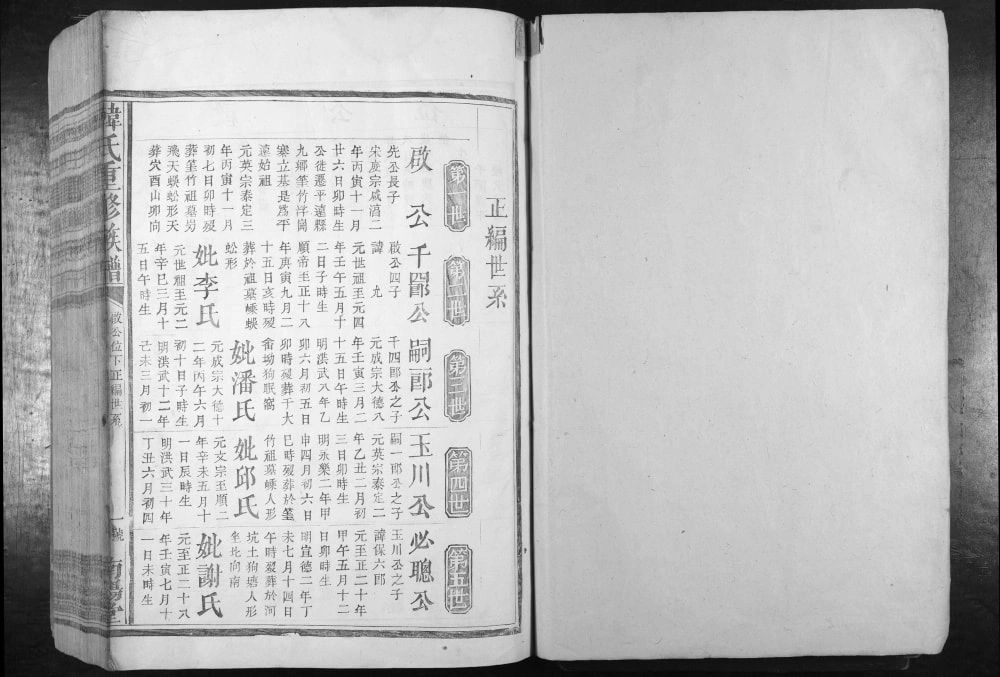 正編世系
第一世
啟公
先公長子
宋度宗咸淳二
年丙寅十一月
廿六日卯時生
公徙遷平遠縣
九鄉筀竹洋崗
寨立基是為平
遠始祖
元英宗泰定三
年丙寅十一月
初七日卯時歿
葬筀竹祖墓另
飛天蜈蚣形天
葬穴酉山卯向
第二世
千四郎公
啟公四子
諱 允
元世祖至元四
年壬午五月千
二日子時生
順帝至正十八
年庚寅九月二
十五日亥時歿
葬於祖墓嵊蜈
蚣形
妣李氏
元世祖至元二
年辛巳三月十
五日午時生
第三世
嗣一郎公
千四郎公之子
元成宗大德八
年壬寅三月二
十五日午時生
明洪武八年乙
卯六月初五日
卯時歿葬于大
畲坳狗眠窩
妣潘氏
元成宗大德十
二年丙午六月
初十日子時生
明洪武十二年
己未三月初一
第四世
玉川公
嗣一郎公之子
元英宗泰定二
年乙丑二月初
三日卯時生
明永樂二年甲
申四月初六日
巳時歿葬於筀
竹祖墓嵊人形
妣邱氏
元文宗至順二
年辛未五月十
一日辰時生
明洪武三十年
丁丑六月初四
第五世
必聰公
玉川公之子
諱保六郎
元至正二十年
甲午五月十二
日卯時生
明宣德二年丁
未七月十四日
午時歿葬於河
坑土狗塘人形
坐北向南
妣謝氏
元至正二十八
年壬寅七月十
一日未時生
韓氏重修族譜
啟公位下正編世系
一號
南陽堂